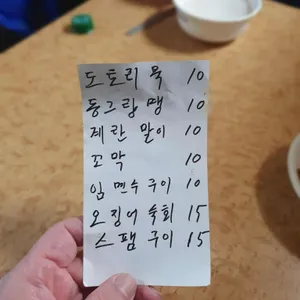 도토리묵 10
동그랑땡 10
제란 말이 10
꼬막 10
임연수구이 10
오징어숙회 15
스팸구이 15